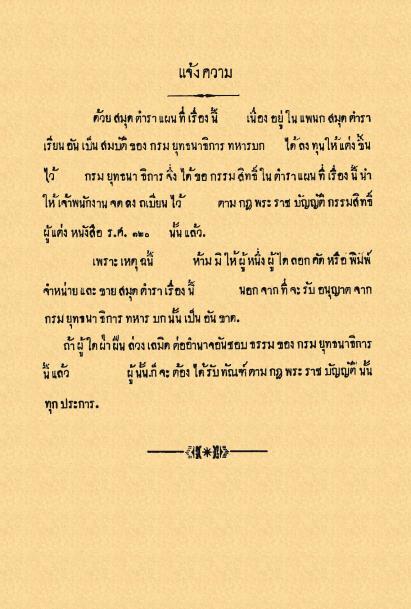 แจ้ง ความ
ด้วย สมุด ตำรา แผน ที่ เรื่อง นี้ เนื่อง อยู่ ใน แพนก สมุด ตำรา
เรียน อัน เป็น สมบัติ ของ กรม ยุทธนาธิการ ทหารบก ได้ ลง ทุน ให้ แต่ง ขึ้น
ไว้ กรม ยุทธนา ธิการ จึ่ง ได้ ขอ กรรม สิทธิ์ ใน ตำรา แผน ที่ เรื่อง นี้ นำ
ให้ เจ้าพนักงาน จด ลง ทเบียน ไว้ ตาม กฎ พระ ราช บัญญัติ กรรมสิทธิ์
ผู้แต่ง หนังสือ ร.ศ. ๑๒๐ นั้น แล้ว.
เพราะ เหตุ ฉนี้ ห้าม มิ ให้ ผู้ หนึ่ง ผู้ ใด ลอก คัด หรือ พิมพ์
จำหน่าย และ ขาย สมุด ตำรา เรื่อง นี้ นอก จาก ที่ จะ รับ อนุญาต จาก
กรม ยุทธนา ธิการ ทหาร บก นั้น เป็น อัน ขาด.
ถ้า ผู้ ใด ฝ่า ฝืน ล่วง เลมิด ต่ออำนาจอันชอบ ธรรม ของ กรม ยุทธนาธิการ
นี้ แล้ว ผู้ นั้น.ก็ จะ ต้อง ได้ รับ ทัณฑ์ ตาม กฎ พระ ราช บัญญัติ นั้น
ทุก ประการ.